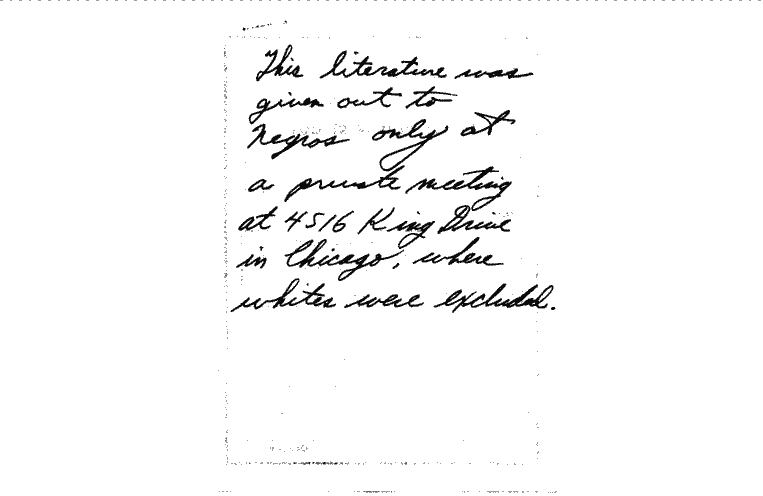 This literature was
given out to
Negros only at
a private meeting
at 4516 King Drive
in Chicago, where
whites were excluded.